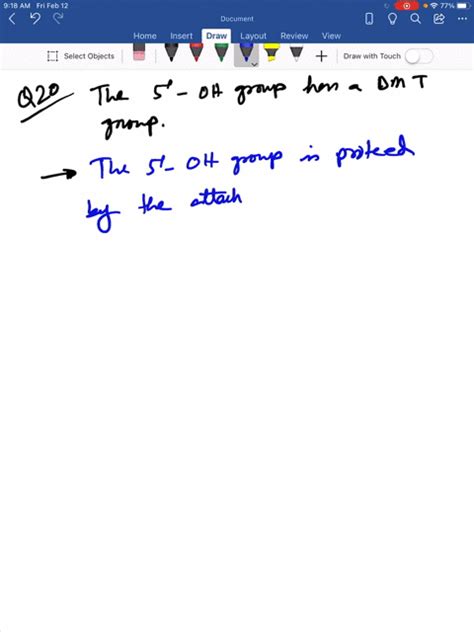 9:18 AM Fri Feb 12
77%
Document
Home Insert Draw Layout Review View
Select Objects
Draw with Touch
Q20 The 5'-OH group has a DMT
group.
→ The 5'-OH group is proteed
by the attach